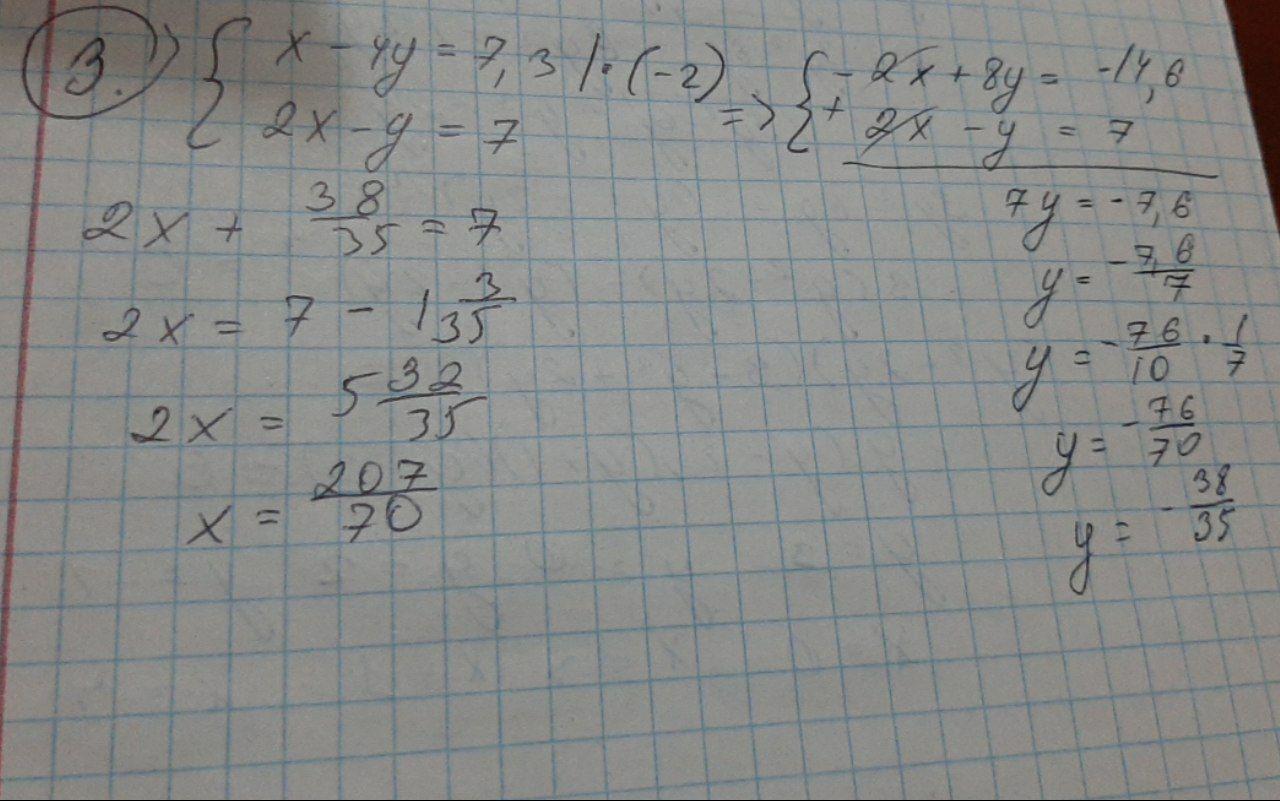 3. 1) { x - 4y = 7,3 | · (-2)
2x - y = 7
=> { - 2x + 8y = -14,6
+ 2x - y = 7
7y = -7,6
y = -7,6/7
y = -76/10 · 1/7
y = -76/70
y = -38/35
2x + 38/35 = 7
2x = 7 - 1 3/35
2x = 5 32/35
x = 207/70